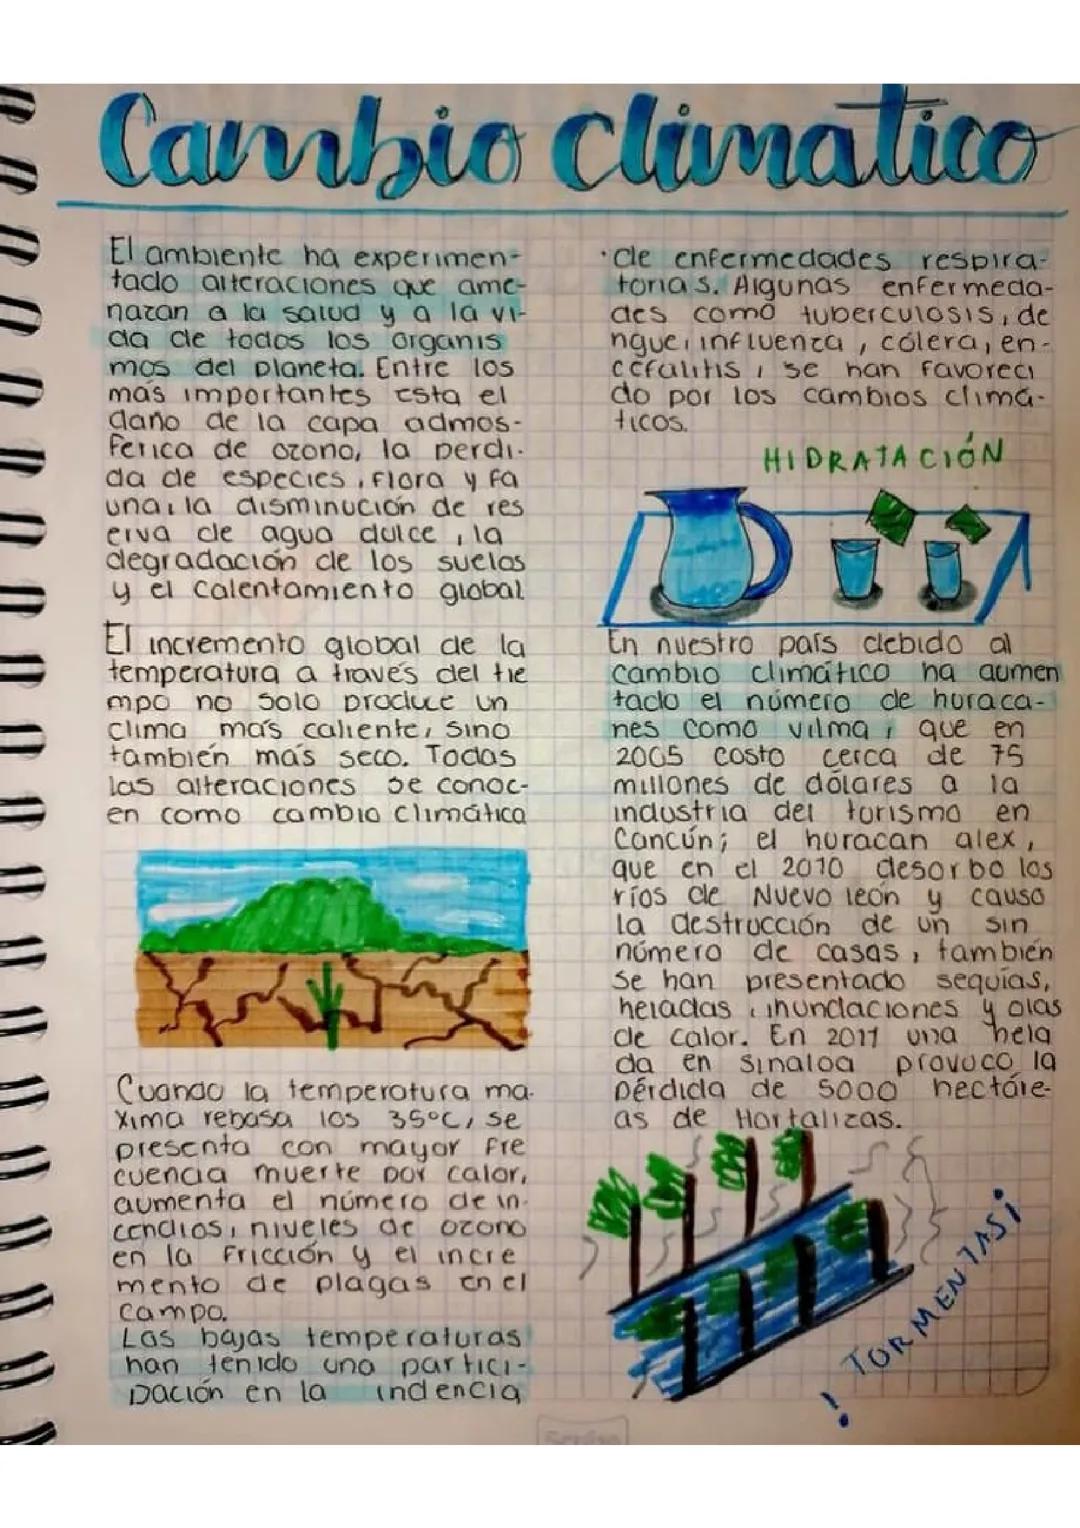 Cambio climatico
El ambiente ha experimen-
tado alteraciones que ame-
nazan a la salud y a la vi-
da de todos los organis
mos del planeta. Entre los
más importantes esta el
daño de la capa admos-
ferica de ozono, la perdi-
da de especies, flora y fa
una, la disminución de res
erva de agua dulce, la
degradación de los suelos
y el calentamiento global
El incremento global de la
temperatura a través del tie
mpo no solo produce un
clima más caliente, sino
también más seco. Todas
las alteraciones se conoc-
en como cambio climática
Cuando la temperatura ma-
xima rebasa los 35°C, se
presenta con mayor fre
cuencia muerte por calor,
aumenta el número de in-
cendios, niveles de ozono
en la fricción y el incre
mento de plagas en el
campo.
Las bajas temperaturas
han tenido una partici-
pación en la indencia
·de enfermedades respira-
torias. Algunas enfermeda-
des como tuberculosis, de
ngue, influenza, cólera, en-
cefalitis, se han favoreci
do por los cambios climá-
ticos.
HIDRATACIÓN
En nuestro país debido al
cambio climático ha aumen
tado el número de huraca-
nes como vilma, que en
2005 costo cerca de 75
millones de dólares a la
industria del turismo en
Cancún; el huracan alex,
que en el 2010 desorbo los
ríos de Nuevo león y causo
la destrucción de un sin
número de casas, también
se han presentado sequías,
heladas, inundaciones y olas
de calor. En 2011 una hela
da en sinaloa provoco la
pérdida de 5000 hectáre-
as de Hortalizas.
! TORMENTAS¡
Scribe